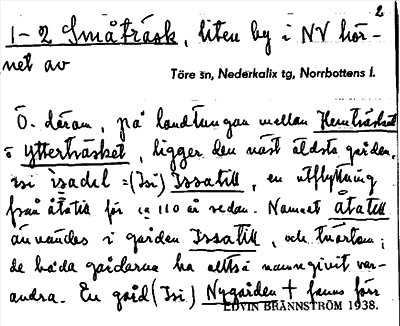 2
1-2 Småträsk, liten by i NV hör-
net av
Töre sn, Nederkalix tg, Norrbottens l.
Ö. därom, på landtungan mellan Hemträsket
o Ytterträsket, ligger den näst äldsta gården,
isi isadil =(Isi) Issatill, en utflyttning
från åtatis för ca 110 år sedan. Namnet Åtatill
användes i gården Issatill, och tvärtom;
de båda gårdarna ha alltså namngivit var-
andra. En gård (Isi) Nygården + fanns förr
EDVIN BRÄNNSTRÖM 1938.